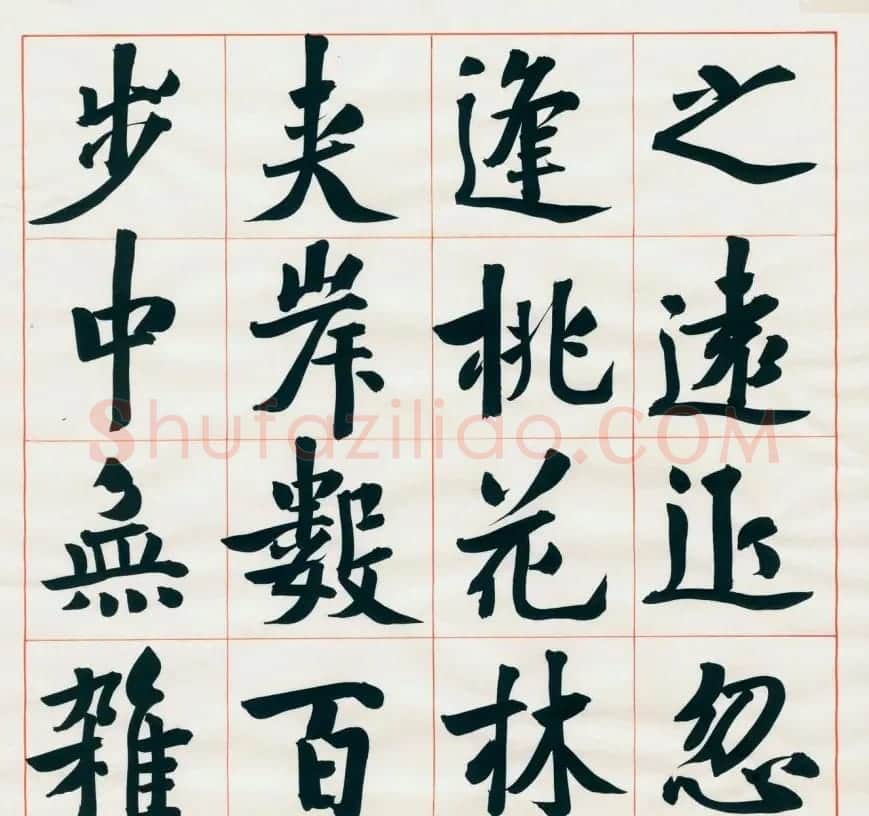 之遠近忽
逢桃花林
夾岸數百
步中無雜
Shufazilido.COM